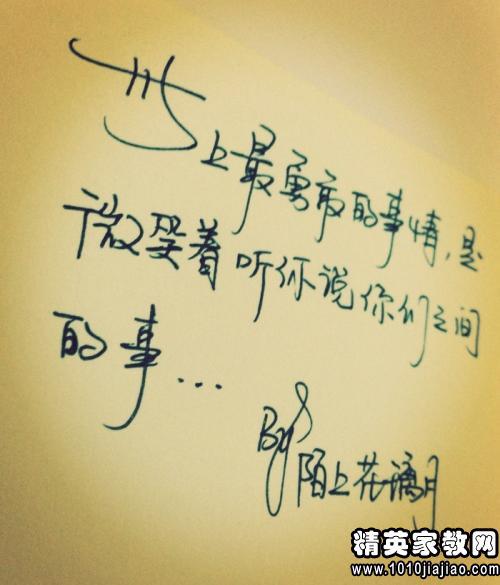 世上最勇敢的事情,是
微笑着听你说你们之间
的事...
By
陌上花璃月
精英家教网
www.1010jiajiao.com